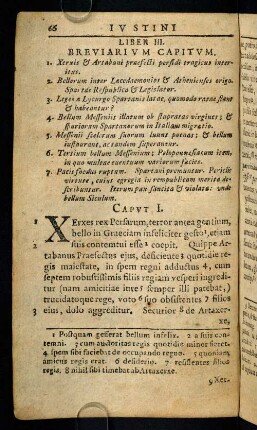 66 IVSTINI
LIBER III.
BREVIARIVM CAPITVM.
1. Xerxis & Artabani praefecti perfidi tragicus interitus.
2. Bellorum inter Lacedaemonios & Athenienses origo.
Spartae Respublica & Legislator.
3. Leges a Lycurgo Spartanis latae, quomodo ratae stent
& habeantur?
4. Bellum Messeniis illatum ob stupratas virgines; &
spuriorum Spartanorum in Italiam migratio.
5. Messenii scelerum suorum luunt poenas: & bellum
instaurant, ac tandem superantur.
6. Tertium bellum Messenium; Peloponnesiacum item,
in quo multae eventuum varietates factae.
7. Pacis foedus ruptum. Spartani premuntur. Periclis
virtus, cujus egregia in rempublicam merita describuntur. Iterum pax sancita & violata: unde
bellum Siculum.
CAPVT I.
1 XErxes rex Persarum, terror antea gentium,
bello in Graeciam infeliciter gesto, etiam
2 suis contemtui esse coepit. Quippe Artabanus
Praefectus ejus, deficiente quotidie regis
majestate, in spem regni adductus, cum
septem robustissimis filiis regiam vesperi ingreditur
(nam amicitiae inter semper illi patebat,)
trucidatoque rege, voto suo obsistentes filios
3 ejus, dolo aggreditur. Securior de Artaxerxe,
1 Postquam gesserat bellum infelix. 2 a suis contemni.
3 cum auctoritas regis quotidie minor fieret.
4 spem sibi faciebat de occupando regno. 5 quoniam
amicus regis erat. 6 desiderio. 7 resistentes filios
regis. 8 nihil sibi timebat ab Artaxerxe.
9 Xer.